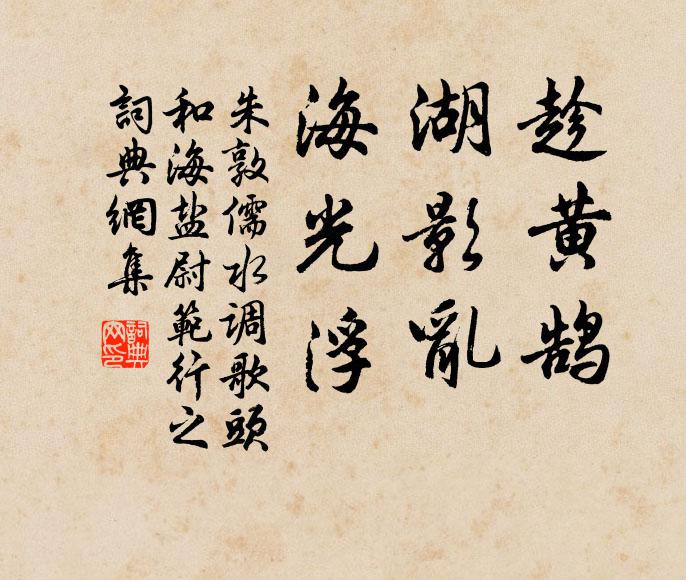 趁黄鹄
湖影亂
海光浮
朱敦儒水调歌頭
和海盐尉範行之
詞典網集
詞典网印